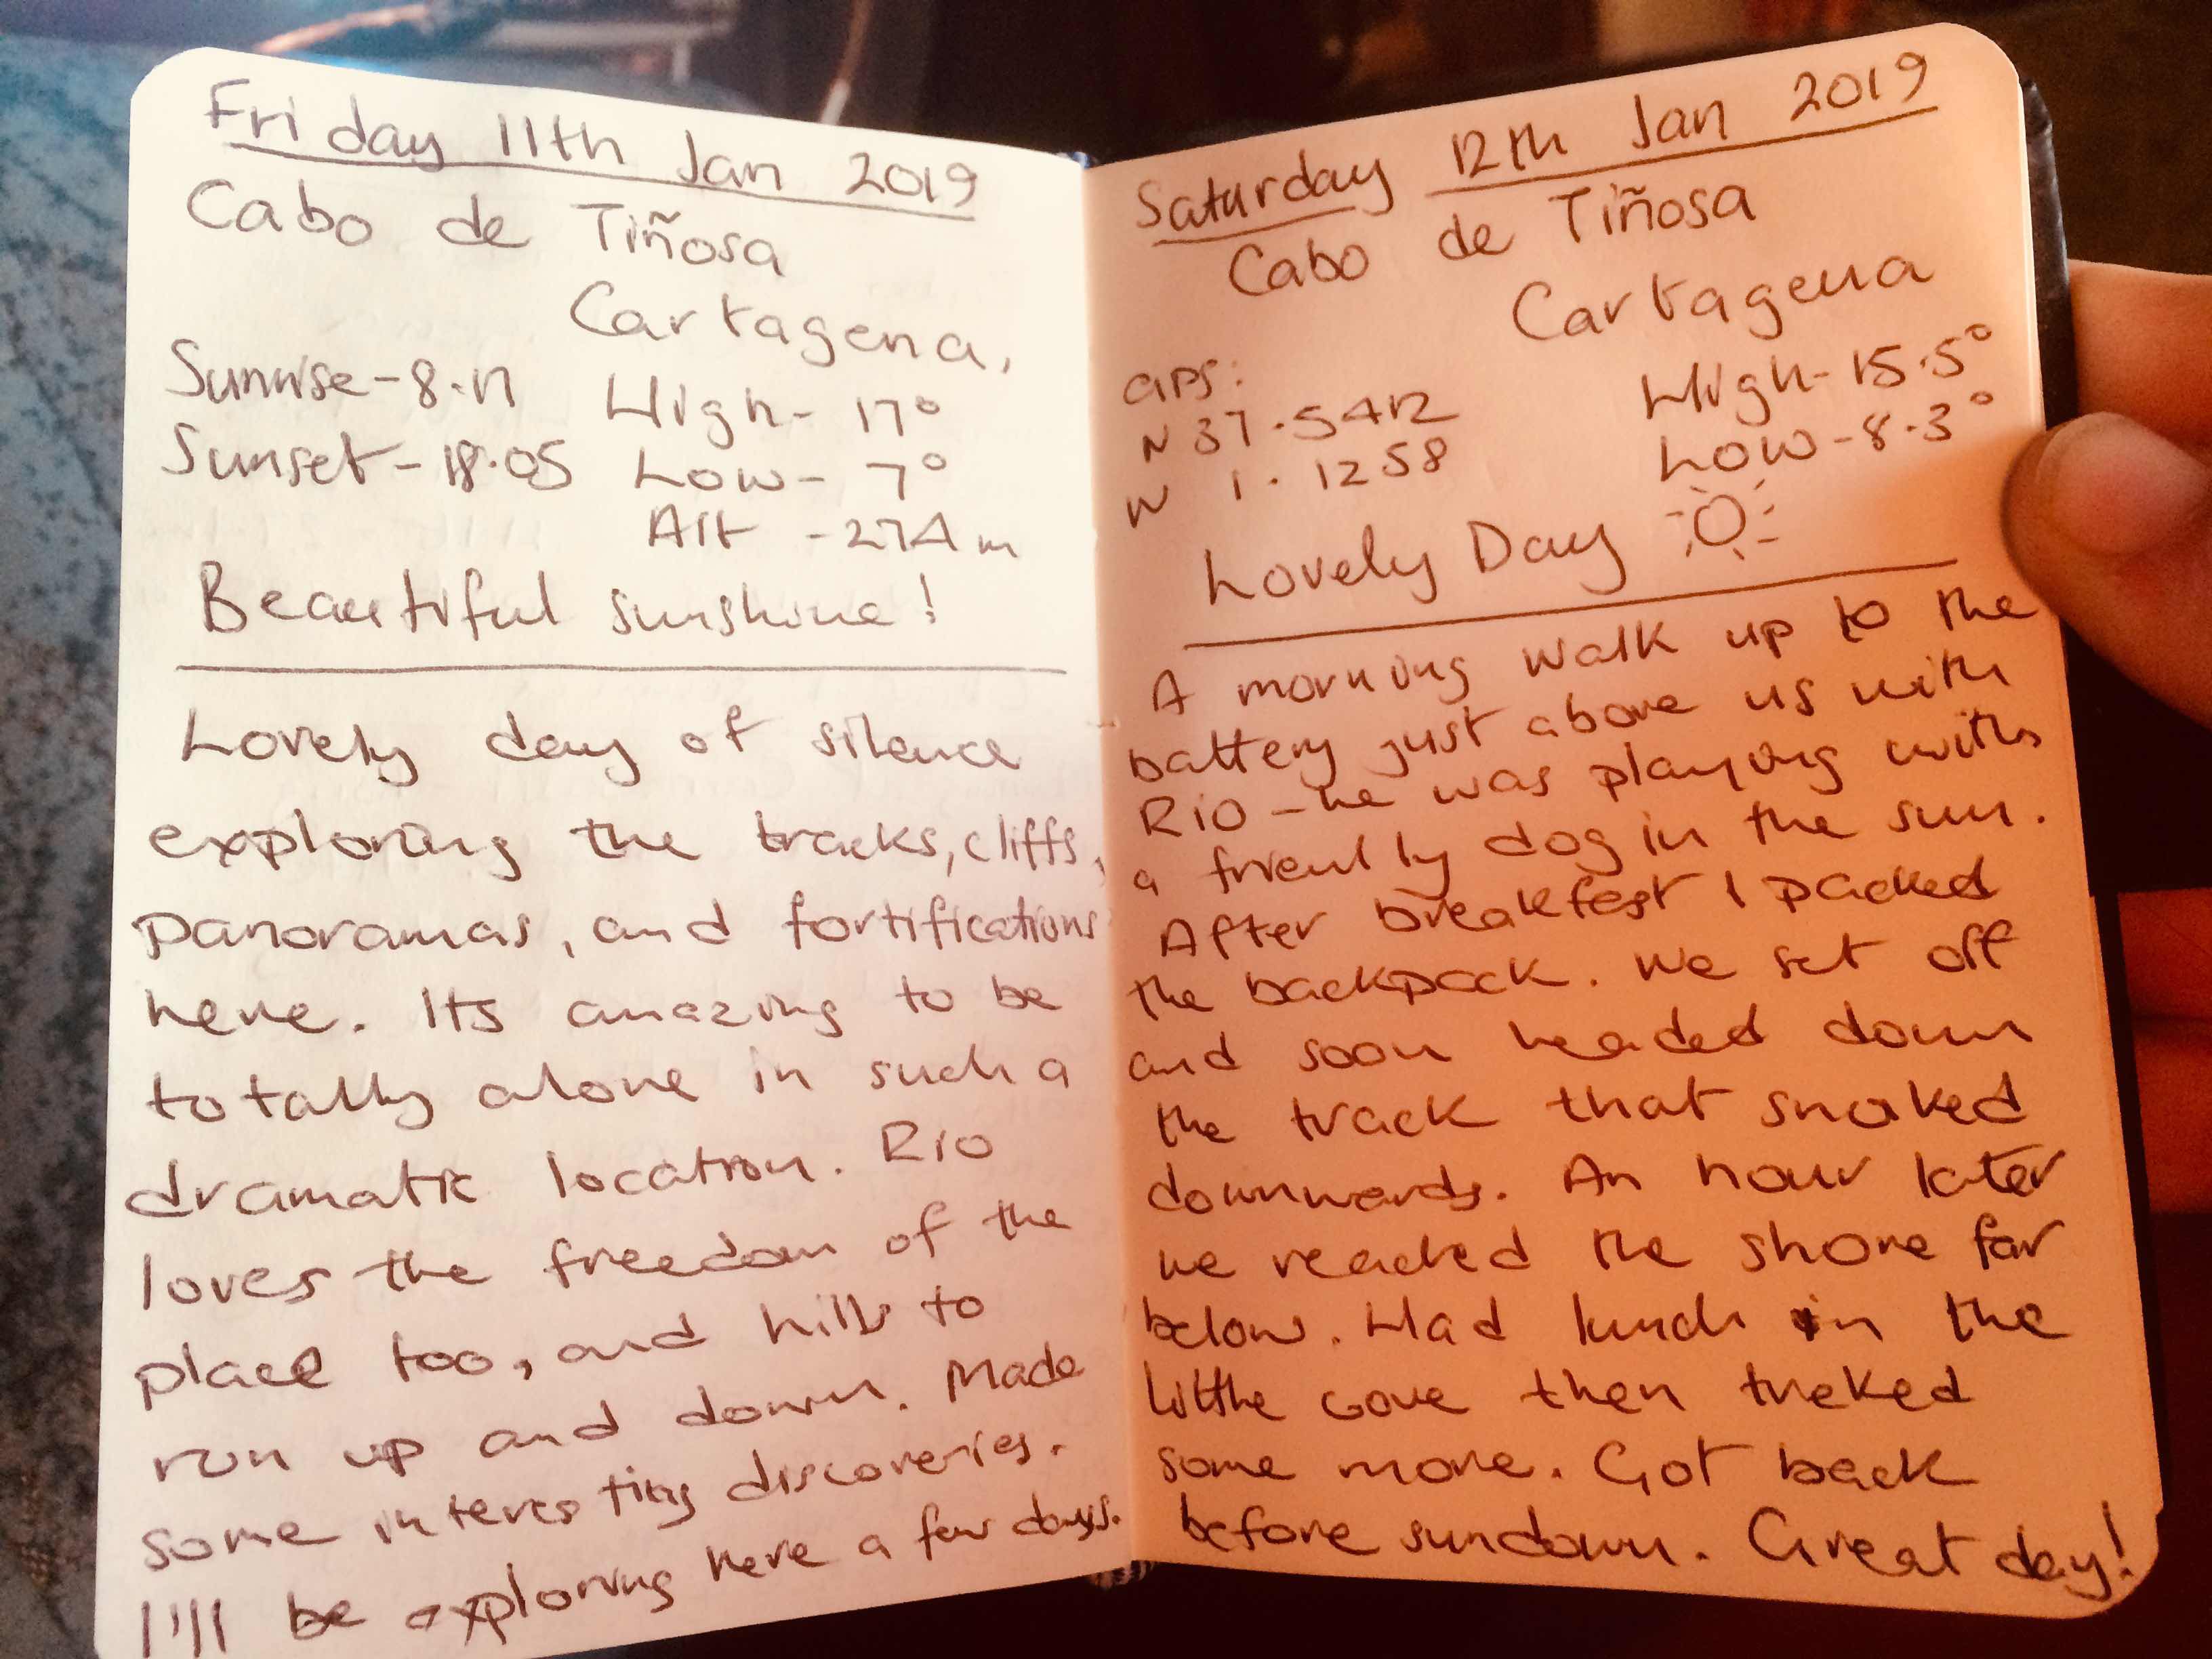 Friday 11th Jan 2019
Cabo de Tiñosa
Cartagena,
Sunrise - 8.17 High - 17°
Sunset - 18.05 Low - 7°
Alt - 274m
Beautiful sunshine!
Lovely day of silence
exploring the tracks, cliffs,
panoramas, and fortifications
here. Its amazing to be
totally alone in such a
dramatic location. Rio
loves the freedom of the
place too, and hills to
run up and down. Made
some interesting discoveries.
I'll be exploring here a few days.
Saturday 12th Jan 2019
Cabo de Tiñosa
Cartagena
GPS: High - 15.5°
N 37.5412 Low - 8.3°
W 1.1258
Lovely Day
A morning walk up to the
battery just above us with
Rio - he was playing with
a friendly dog in the sun.
After breakfast I packed
the backpack. We set off
and soon headed down
the track that snaked
downwards. An hour later
we reached the shore far
below. Had lunch in the
little cove then treked
some more. Got back
before sundown. Great day!